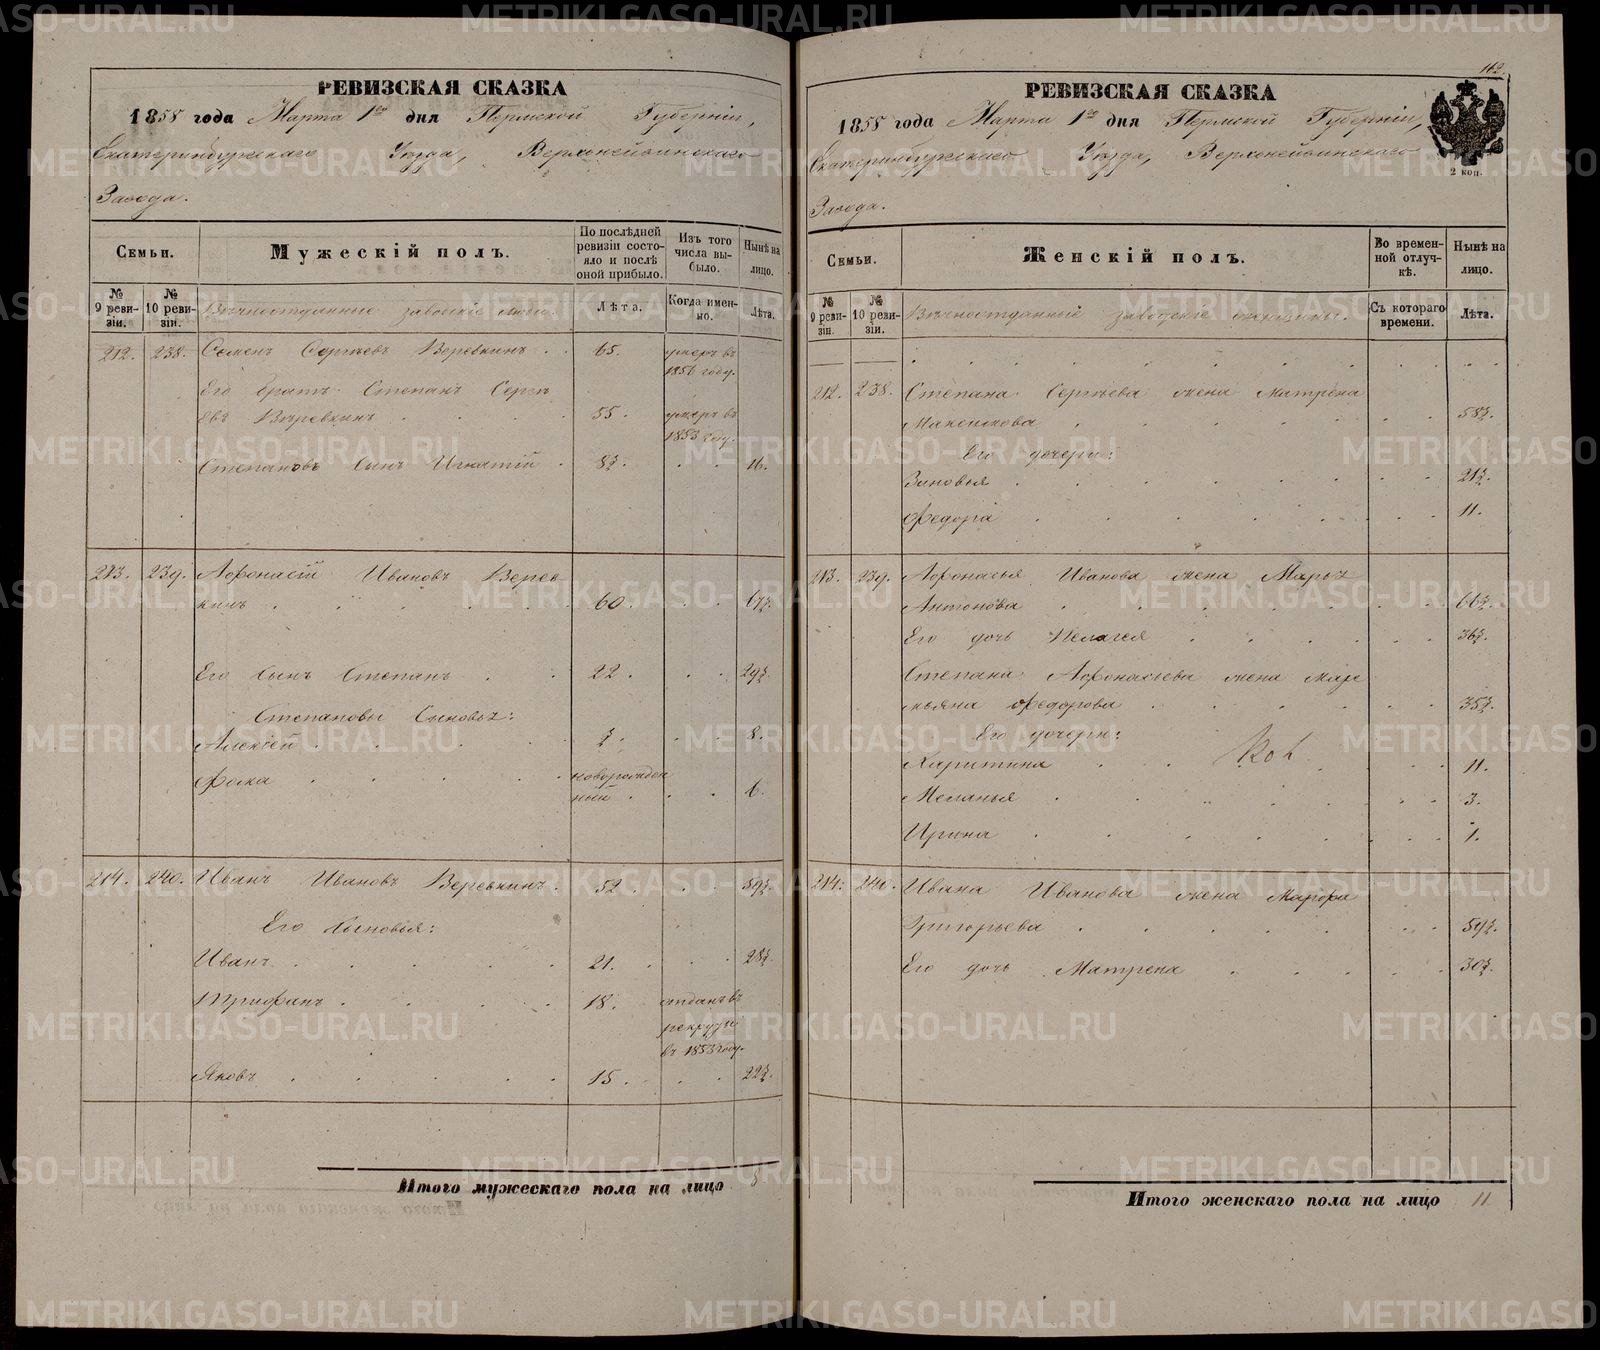 РЕВИЗСКАЯ СКАЗКА
1858 года Марта 1го дня Пермской Губерніи,
Екатеринбургскаго Уѣзда, Верхнейвинскаго
Завода.
Семьи.
Мужескій полъ.
По послѣдней ревизіи состояло и послѣ оной прибыло.
Изъ того числа выбыло.
Нынѣ на лицо.
№ 9 ревизіи.
№ 10 ревизіи.
Вѣчноотданные заводскіе люди.
Лѣта.
Когда именно.
Лѣта.
212. 238. Семенъ Сергѣевъ Веревкинъ . . 65. умеръ въ
1856 году.
Его братъ Степанъ Серге
евъ Веревкинъ 55. умеръ въ
1853 году.
Степановъ сынъ Игнатій 8½. 16.
213. 239. Афонасій Ивановъ Верев
кинъ 60. 67½.
Его сынъ Степанъ 22. 29½.
Степановы сыновья:
Алексѣй ½. 8.
Фока новорожден
ный 6.
214. 240. Иванъ Ивановъ Веревкинъ. 52. 59½.
Его сыновья:
Иванъ 21. 28½.
Трифанъ 18. отданъ въ
рекруты
въ 1853 году.
Яковъ 15. 22½.
Итого мужескаго пола на лицо 8
162
РЕВИЗСКАЯ СКАЗКА
1858 года Марта 1го дня Пермской Губерніи,
Екатеринбургскаго Уѣзда, Верхнейвинскаго
Завода.
2 коп.
Семьи.
Женскій полъ.
Во временной отлучкѣ.
Нынѣ на лицо.
№ 9 ревизіи.
№ 10 ревизіи.
Съ котораго времени.
Лѣта.
212. 238. Степана Сергѣева жена Матрена
Максимова 58½.
Его дочери:
Зиновья 21½.
Федора 11.
213. 239. Афонасья Иванова жена Марья
Антонова 66½.
Его дочь Пелагея 36½.
Степана Афонасьева жена Мар
кьяна Федорова 35½.
Его дочери:
Харитина 11.
Меланья 3.
Ирина 1.
214. 240. Ивана Иванова жена Марфа
Григорьева 59½.
Его дочь Матрена 30½.
Итого женскаго пола на лицо 11
METRIKI.GASO-URAL.RU